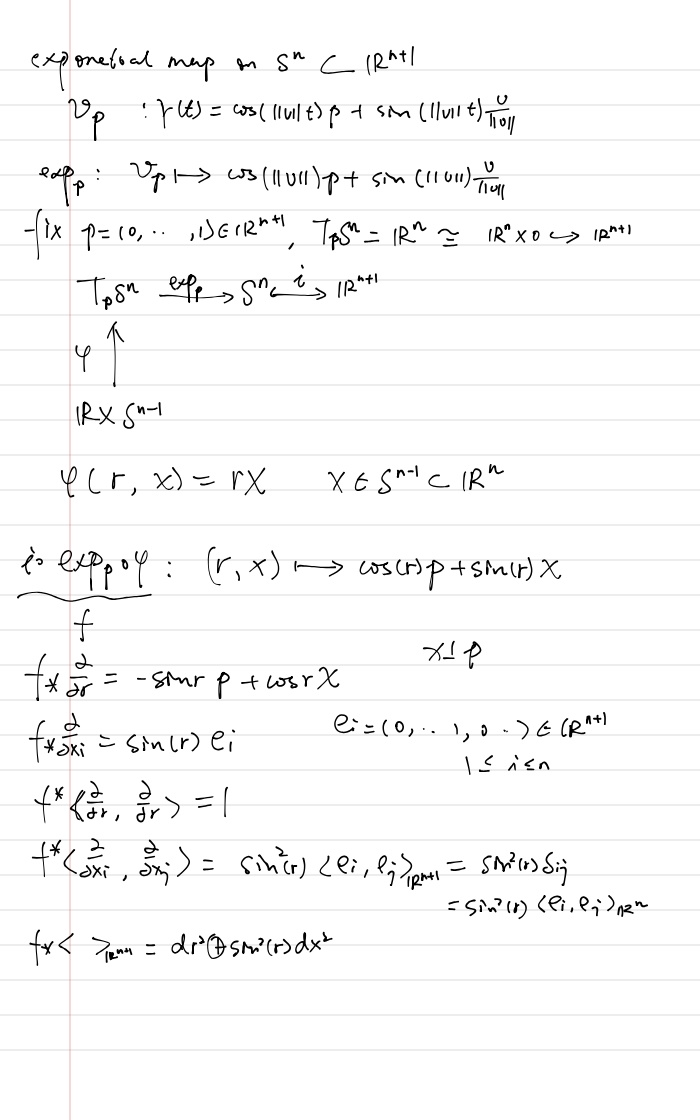 exponetial map on Sⁿ ⊂ ℝⁿ⁺¹
v_p : γ(t) = cos(||v||t) p + sin(||v||t) v/||v||
exp_p : v_p ↦ cos(||v||)p + sin(||v||) v/||v||
fix p=(0,..,1)∈ℝⁿ⁺¹, T_pSⁿ = ℝⁿ ≅ ℝⁿ×0 ↪ ℝⁿ⁺¹
T_pSⁿ —exp_p→ Sⁿ ↪i ℝⁿ⁺¹
φ ↑
ℝ×Sⁿ⁻¹
φ(r, x) = rx x∈Sⁿ⁻¹⊂ℝⁿ
i∘exp_p∘φ : (r, x) ↦ cos(r)p + sin(r)x
f
x⊥p
f_* ∂/∂r = -sinr p + cosr x
f_* ∂/∂xi = sin(r) ei ei=(0,..1,0..)∈ℝⁿ⁺¹
1≤i≤n
f*⟨∂/∂r, ∂/∂r⟩ = 1
f*⟨∂/∂xi, ∂/∂xj⟩ = sin²(r)⟨ei, ej⟩_ℝⁿ⁺¹ = sin²(r)δij
= sin²(r)⟨ei, ej⟩_ℝⁿ
f_*⟨ ⟩_ℝⁿ⁺¹ = dr²⊕sin²(r)dx²